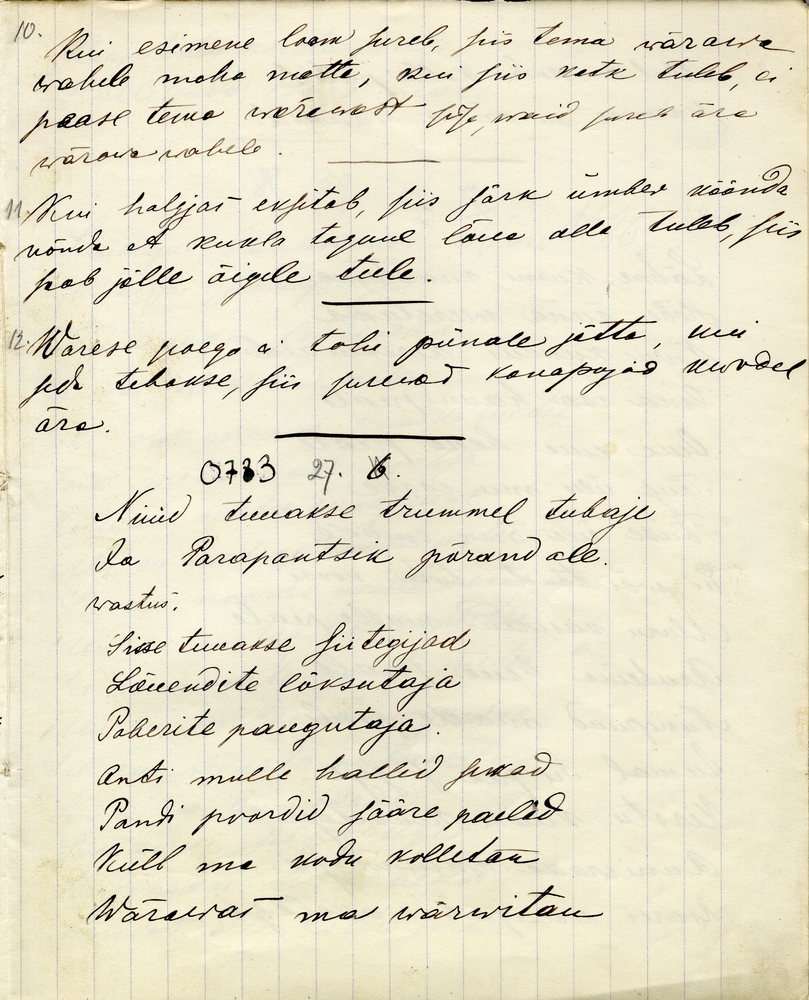 10.
Kui esimene loom sureb, siis tema wärawa
wahele maha matta, kui siis katk tuleb, ei
paase tema wärawast sisse, waid sureb ära
wärawa wahele.
11. Kui haljjas eksitab, siis särk ümber käända
nõnda et kukla tagune lõua alla tuleb, siis
saab jälle õigele teele.
12. Warese poega ei tohi piinale jätta, kui
seda tehakse, siis surewad kanapojad
ära.
0783 27. 6.
Nüüd tuuakse trummel tubaje
Ja Parapantsik põrandale.
wastus.
Sisse tuuakse siitegijad
Lõuendite lõksutaja
Poberite paugutaja.
Anti mulle hallid sukad
Pandi poordid sääre paelad
Küll ma kodu kolletan
Wärawas ma wärwitan